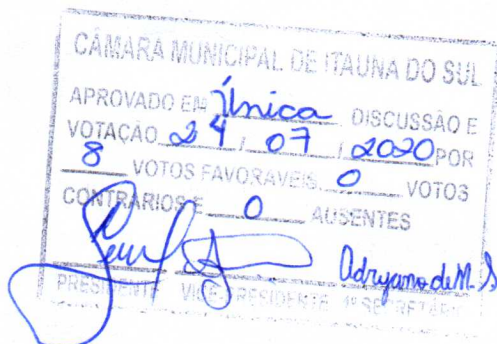 CÂMARA MUNICIPAL DE ITAUNA DO SUL
APROVADO EM Única DISCUSSÃO E
VOTAÇÃO 24 / 07 / 2020 POR
8 VOTOS FAVORAVEIS, 0 VOTOS
CONTRÁRIOS E 0 AUSENTES
Adryano de M. S
PRESIDENTE VICE-PRESIDENTE 1º SECRETÁRIO